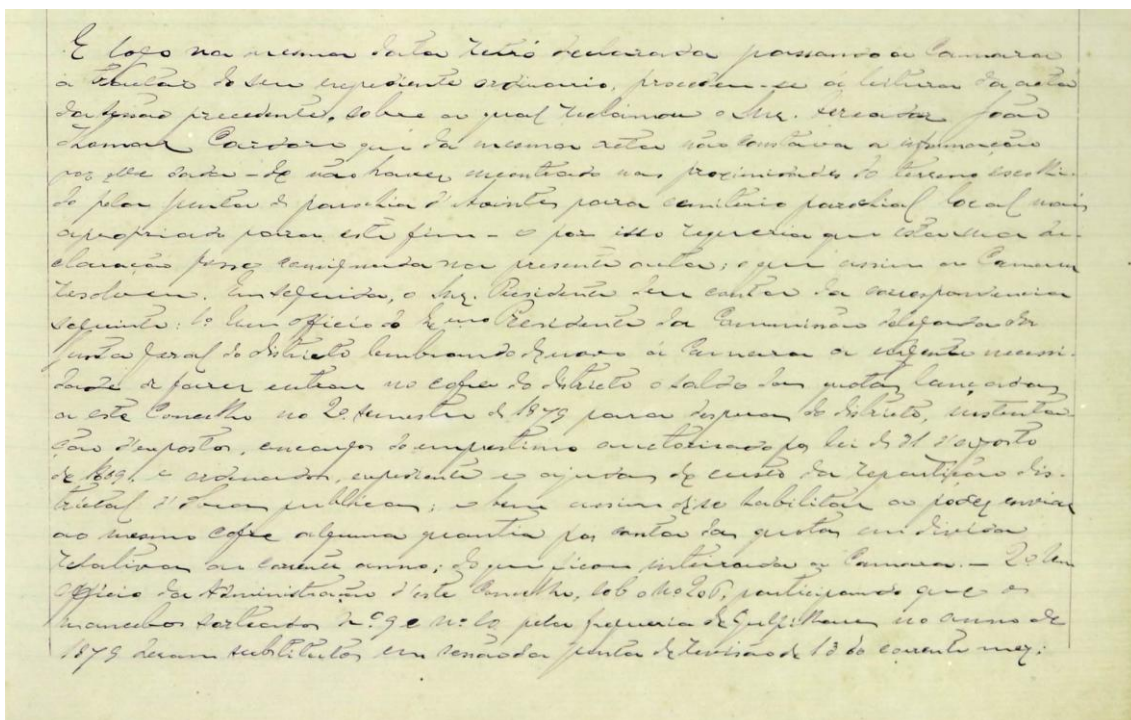 E logo na mesma data retró declarada passando a Camara
a tractar do seu expediente ordinario, procedeu-se á leitura da acta
da sessão precedente, sobre a qual reclamou o Snr. vereador João
Thomaz Cardozo que da mesma acta não constava a informação
por elle dada - de não haver encontrado nas proximidades do terreno escolhi-
do pela junta de parochia d'Avintes para cemiterio parochial local mais
apropriado para este fim - e por isso requereria que esta sua de-
claração fosse consignada na presente acta; o que assim a Camara
resolveu. Em seguida, o Snr. Presidente deu conta da correspondencia
seguinte: 1o Um officio do Presidente da Commissão delegada da
Junta Geral do districto lembrando de novo á Camara a urgente necessi-
dade de fazer entrar no cofre do districto o saldo das quotas lançadas
a este Concelho no 2o semestre de 1879 para despezas do districto, sustenta-
ção d'expostos, encargos do emprestimo auctorisado por lei de 21 d'agosto
de 1869, e ordenados, expediente e ajudas de custo da repartição dis-
trictal d'obras publicas; e bem assim de se habilitar a poder enviar
ao mesmo cofre alguma quantia por conta das quotas em divida
relativas ao corrente anno; do que ficou inteirada a Camara. - 2o Um
officio da Administração d'este Concelho, sob o no 206, participando que os
mancebos sorteados no 9 e no 10 pela freguezia de Gulpilhares no anno de
1879 deram substitutos em sessão da junta de revisão de 13 do corrente mez;